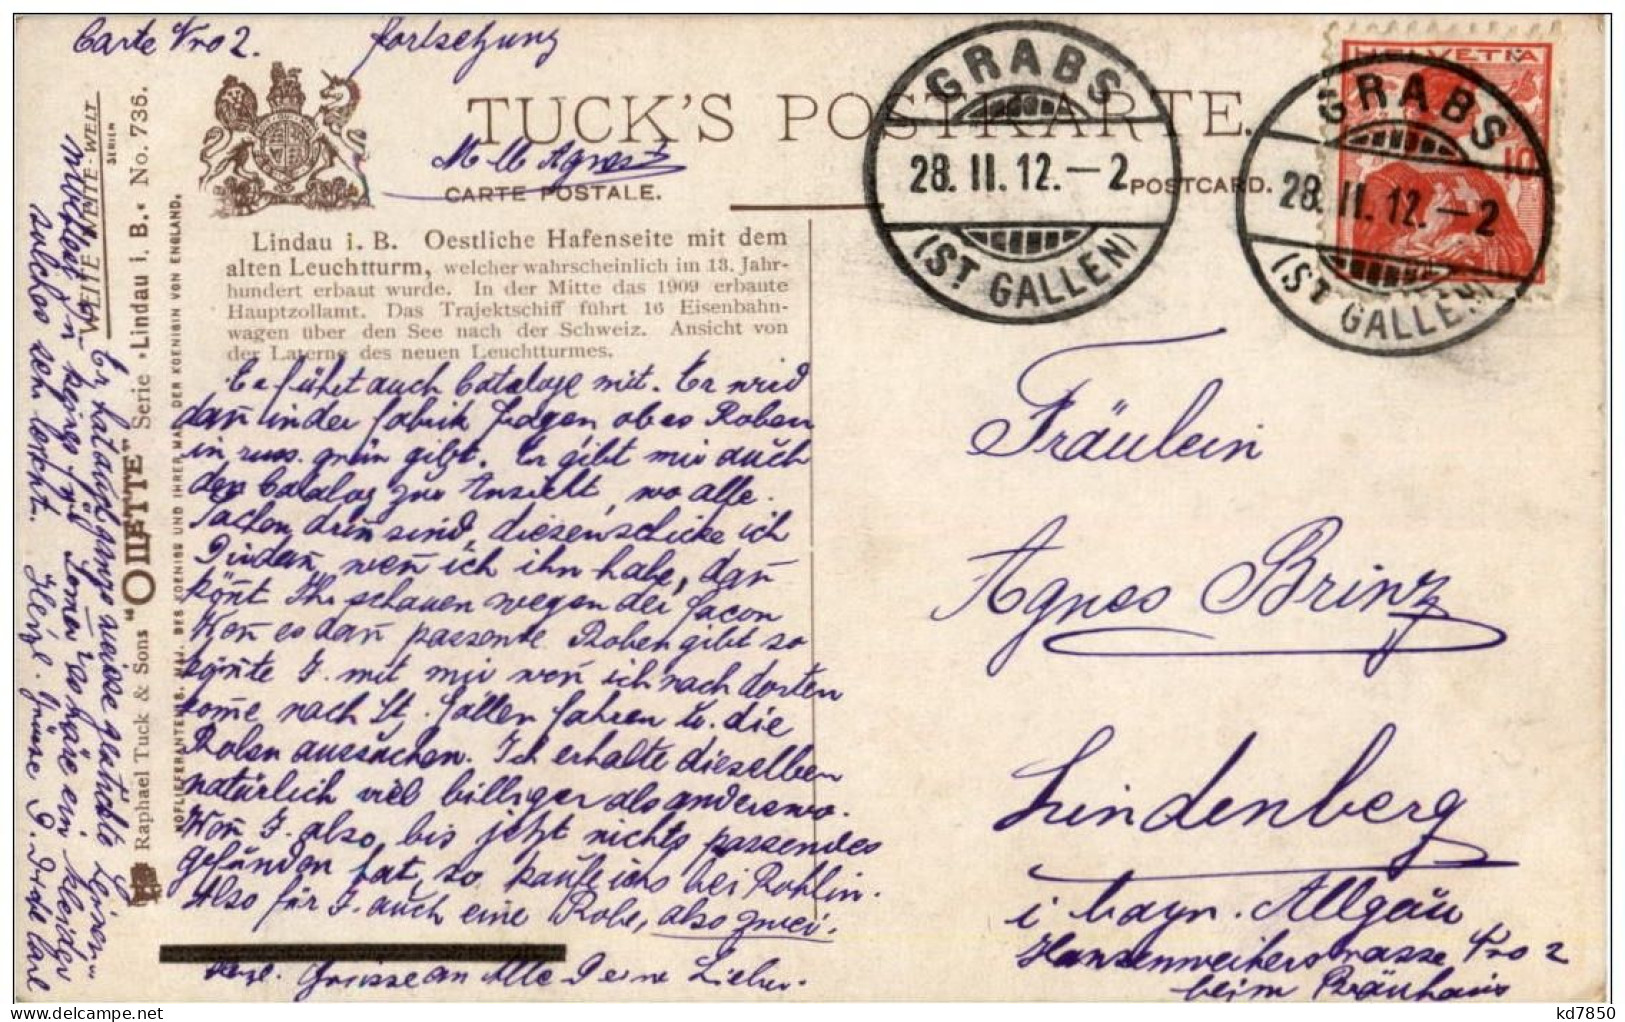 Carte Nro 2. Fortsetzung
TUCK'S POSTKARTE.
Mlle Agnes
CARTE POSTALE. POSTCARD.
GRABS
28. II. 12. — 2
(ST GALLEN)
HELVETIA
10
GRABS
28. II. 12. — 2
(ST GALLEN)
Lindau i. B. Oestliche Hafenseite mit dem
alten Leuchtturm, welcher wahrscheinlich im 13. Jahr-
hundert erbaut wurde. In der Mitte das 1909 erbaute
Hauptzollamt. Das Trajektschiff führt 16 Eisenbahn-
wagen über den See nach der Schweiz. Ansicht von
der Laterne des neuen Leuchtturmes.
Er führt auch Cataloge mit. Er wird
dañ in der Fabrik fragen ob es Roben
in russ. grün gibt. Er gibt mir auch
den Catalog zur Ansicht, wo alle
Facon driñ sind, diesen schicke ich
Dir dañ, weñ ich ihn habe, dañ
köñt Ihr schauen wegen der Facon
Weñ es dañ passende Roben gibt so
köñte J. mit mir weñ ich nach dorten
kome nach St. Gallen fahren u. die
Roben aussuchen. Ich erhalte dieselben
natürlich viel billiger als anderswo.
Weñ J. also bis jetzt nichts passendes
gefunden hat, so kaufe ichs bei Rohlin.
Also für J. auch eine Robe, also zwei.
Herzl. Grüsse an Alle Deine Lieben.
Fräulein
Agnes Brinz
Lindenberg
i bayr. Allgäu
Hansenweiherstrasse Nro 2
beim Bräuhaus
WEITE WELT
SERIEN
WEITE WELT
Raphael Tuck & Sons "OILETTE" Serie •Lindau i. B.• No. 736.
HOFLIEFERANTEN I.I. M.M. DES KOENIGS UND IHRER MAJ. DER KOENIGIN VON ENGLAND.
Er hat auch ganz weisse gestickte Leinen
für Somer das wäre ein Kleider
solches sehr leicht. Herzl. Grüsse D. Dich lb. Carl
kd7850